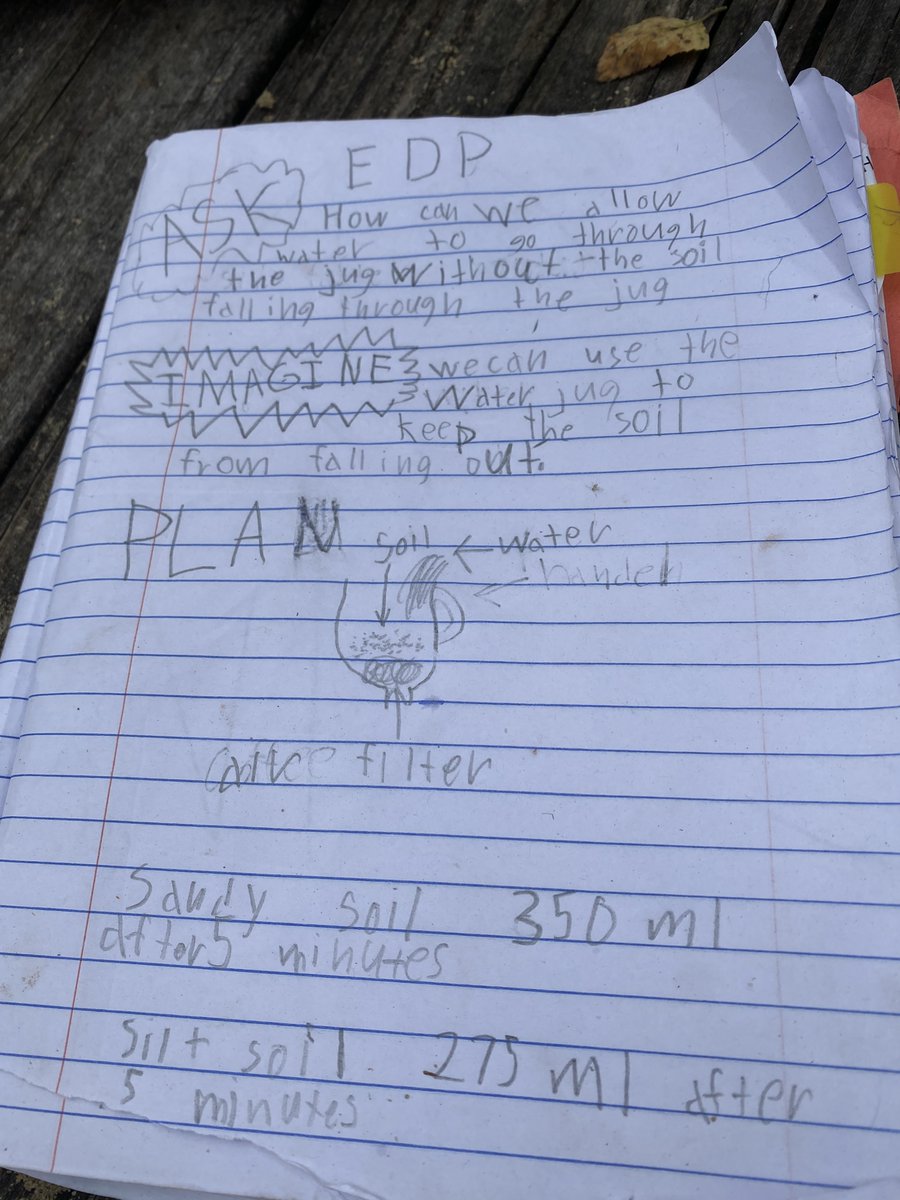 EDP
ASK How can we allow
water to go through
the jug without the soil
falling through the jug
IMAGINE we can use the
Water jug to
keep the soil
from falling out.
PLAN
soil ← water
handel
filter
Sandy soil 350 ml
after 5 minutes
Silt soil 275 ml after
5 minutes